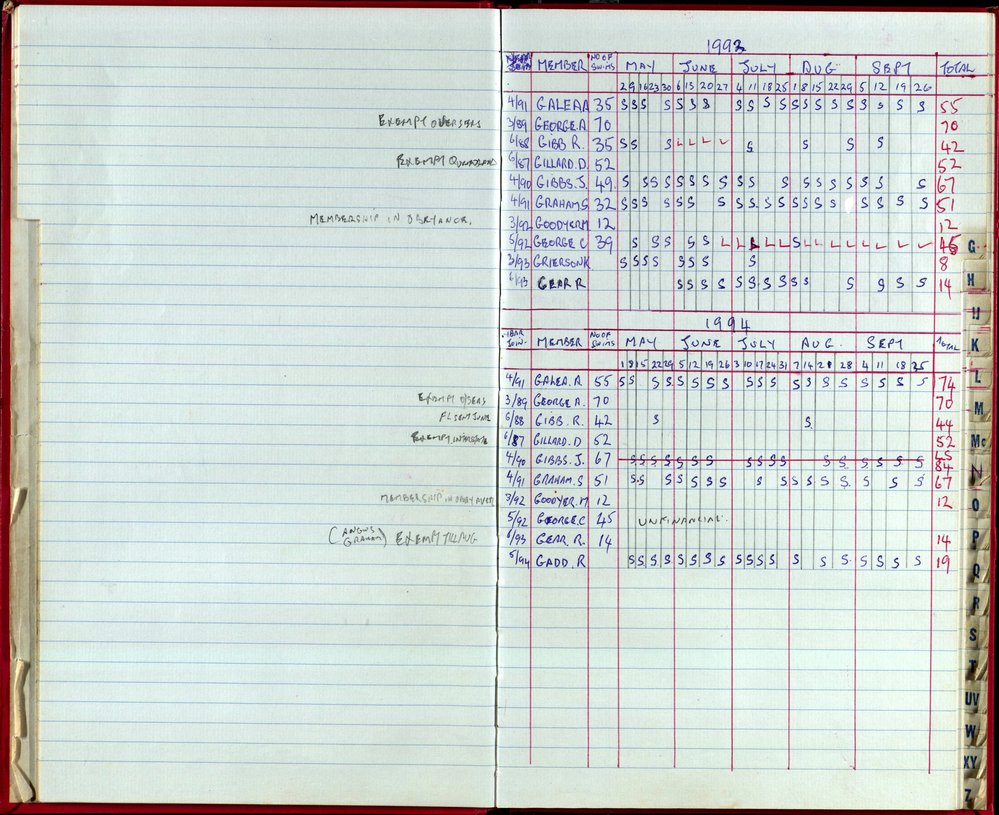 1993
YEAR JOIN MEMBER NO OF SWIMS MAY JUNE JULY AUG SEPT TOTAL
2 9 16 23 30 6 13 20 27 4 11 18 25 1 8 15 22 29 5 12 19 26
4/91 GALEA A 35 S S S S S S S S S S S S S S S S S S S S 55
EXEMPT OVERSEAS 3/89 GEORGE.A 70 70
6/88 GIBB R. 35 S S S L L L L S S S S 42
EXEMPT QUEENSLAND 6/87 GILLARD.D. 52 52
4/90 GIBBS.J. 49 S S S S S S S S S S S S S S S S S S 67
4/91 GRAHAM S 32 S S S S S S S S S S S S S S S S S S S 51
MEMBERSHIP IN OBEYANCE. 3/92 GOODYER M 12 12
5/92 GEORGE C 39 S S S S S L L L L L S L L L L L L L L 45
3/93 GRIERSON K S S S S S S S S 8
6/93 GEAR R S S S S S S S S S S S S S S 14
1994
YEAR JOIN. MEMBER NO OF SWIMS MAY JUNE JULY AUG. SEPT TOTAL
1 8 15 22 29 5 12 19 26 3 10 17 24 31 7 14 21 28 4 11 18 25
4/91 GALEA.A 55 S S S S S S S S S S S S S S S S S S S 74
EXEMPT O/SEAS 3/89 GEORGE A. 70 70
6/88 GIBB.R. 42 S S 44
EXEMPT INTERSTATE 6/87 GILLARD.D 52 52
4/90 GIBBS.J. 67 S S S S S S S S S S S S S S S S S 84
4/91 GRAHAM.S 51 S S S S S S S S S S S S S S S S 67
MEMBERSHIP IN OBEYANCE 3/92 GOODYER.M 12 12
5/92 GEORGE.C 45 UNFINANCIAL.
(ANGUS GRAHAM) EXEMPT TILL AUG 6/93 GEAR.R. 14 14
5/94 GADD.R S S S S S S S S S S S S S S S S S S S 19
G
H
IJ
K
L
M
Mc
N
O
P
Q
R
S
T
UV
W
XY
Z